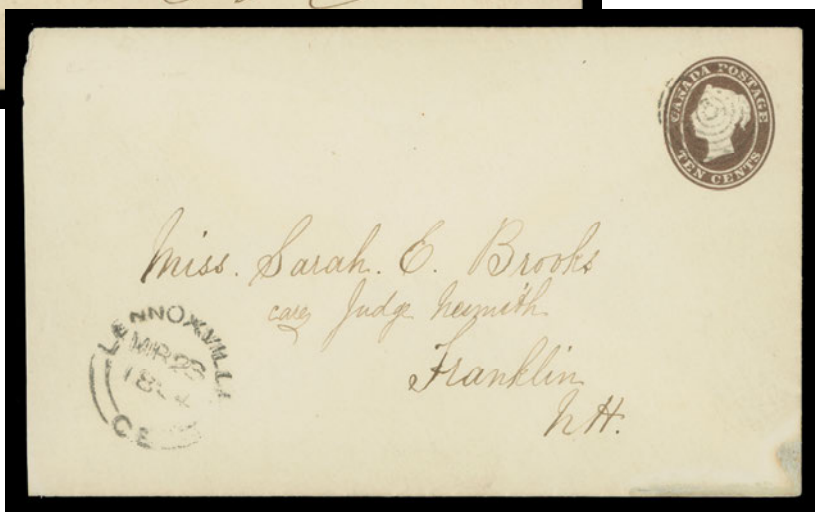 CANADA POSTAGE
TEN CENTS
Miss. Sarah. E. Brooks
care Judge Nesmith
Franklin
N H.
LENNOXVILLE
MR 23
C E